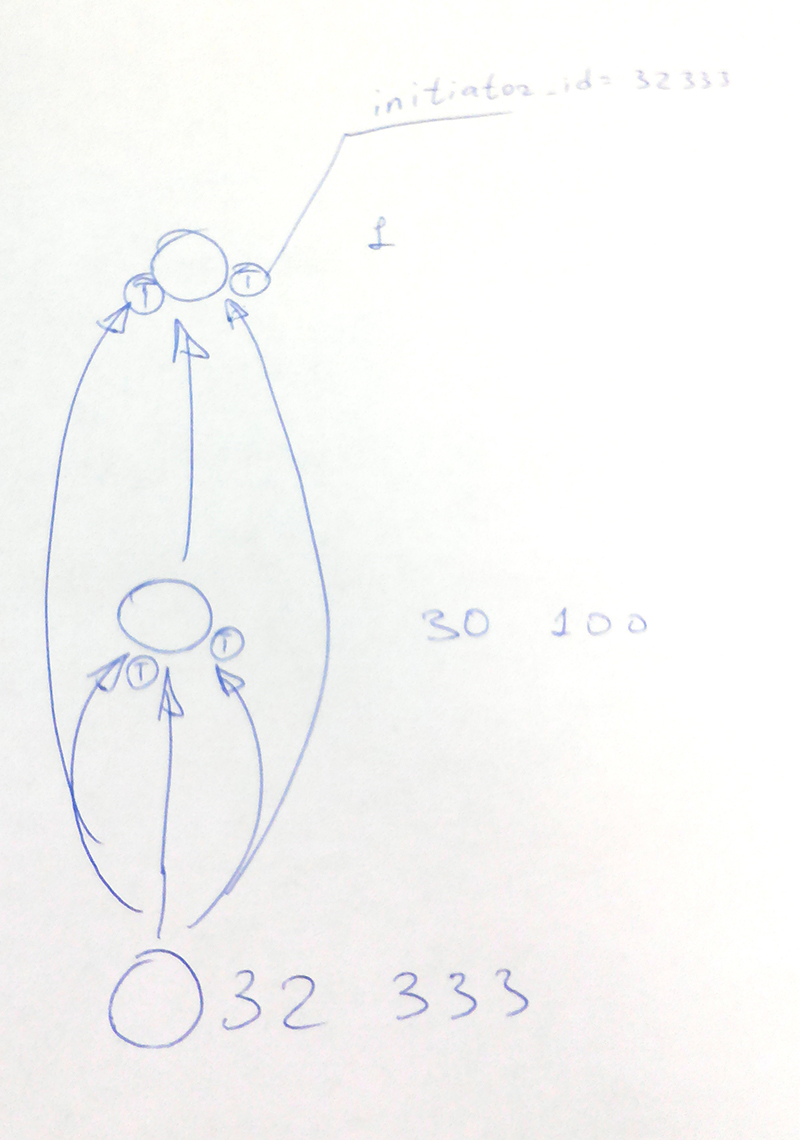 initiator_id= 32 333
1
T T
30 100
T
T
32 333